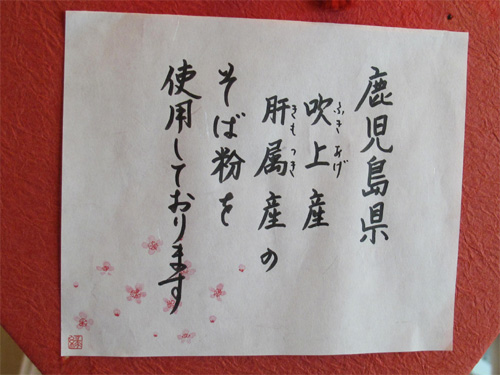 鹿児島県
吹上産
ふきあげ
肝属産の
きもつき
そば粉を
使用しております